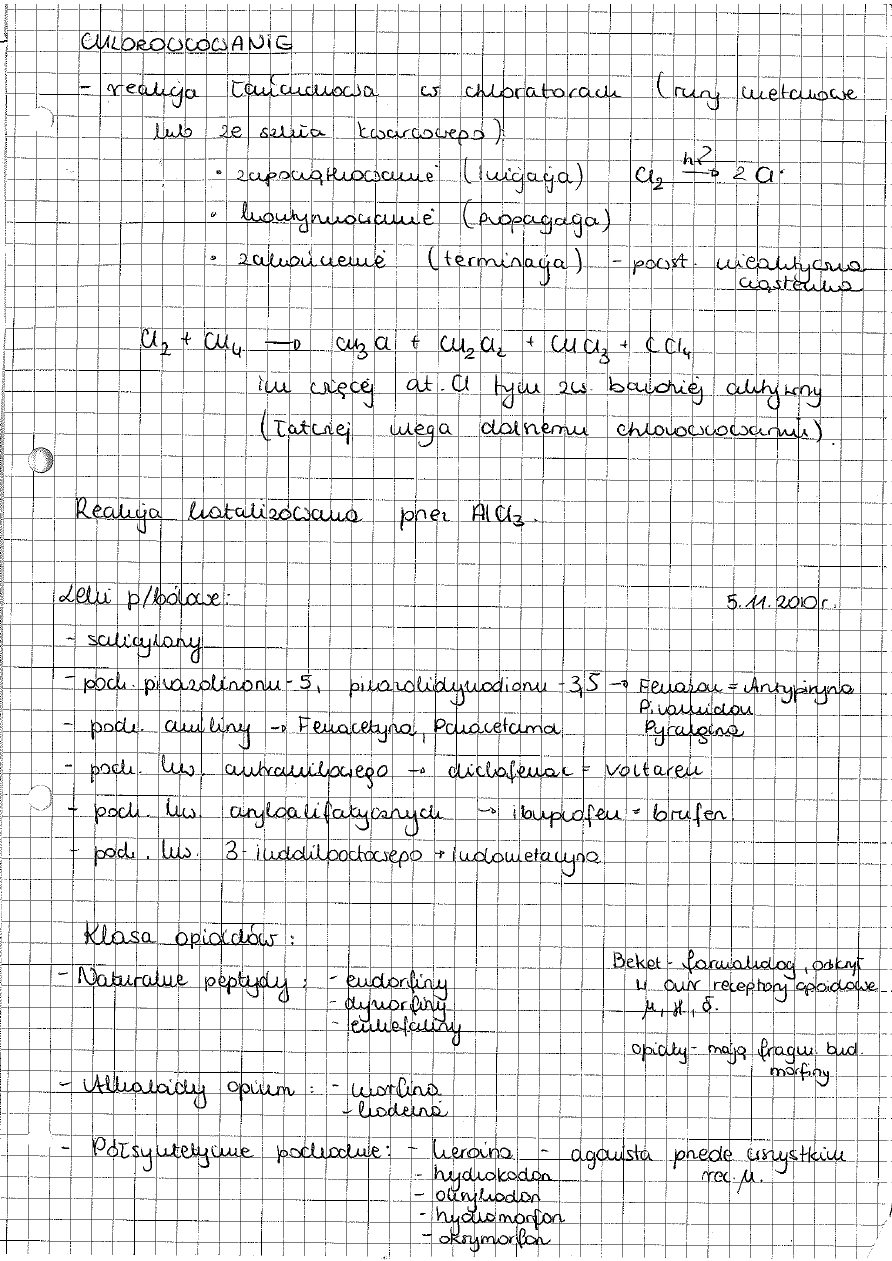 CHLOROWCOWANIE
- reakcja łańcuchowa w chloratorach (rury metalowe
lub ze szkła kwarcowego)
• zapoczątkowanie (inicjacja) Cl₂ —hν→ 2 Cl·
• kontynuowanie (propagacja)
• zakończenie (terminacja) - powst. nieaktywna
cząsteczka
Cl₂ + CH₄ → CH₃Cl + CH₂Cl₂ + CHCl₃ + CCl₄
im więcej at. Cl tym zw. bardziej aktywny
(łatwiej ulega dalszemu chlorowcowaniu).
Reakcja katalizowana przez AlCl₃.
Leki p/bólowe: 5.11.2010r.
- salicylany
- poch. pirazolinonu-5, pirazolidynodionu-3,5 → Fenazon = Antypiryna
Piramidon
- poch. aniliny → Fenacetyna, Paracetamol Pyralgina
- poch. kw. antranilowego → diclofenac = voltaren
- poch. kw. aryloalifatycznych → ibuprofen = brufen
- poch. kw. 3-indolilooctowego → indometacyna
Klasa opioidów:
Beket - farmakolog, odkrył
- Naturalne peptydy: - endorfiny
u ośr. receptory opioidowe
- dynorfiny
μ, ϰ, δ.
- enkefaliny
opiaty - mają fragm. bud.
morfiny
- Alkaloidy opium: - morfina
- kodeina
- Półsyntetyczne pochodne: - heroina - agonista przede wszystkim
- hydrokodon rec. μ.
- oksykodon
- hydromorfon
- oksymorfon